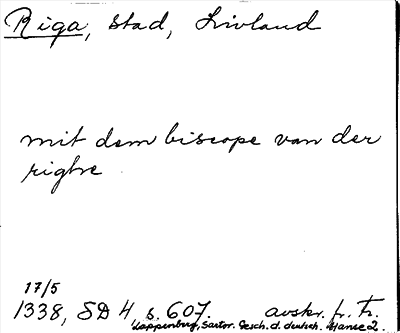 Riga, Stad, Livland
mit dem biscope van der
righe
17/5
1338, SD 4 s. 607. avskr. fr. Tr.
Lappenberg, Sartor. Gesch. d. deutsch. Hanse 2.